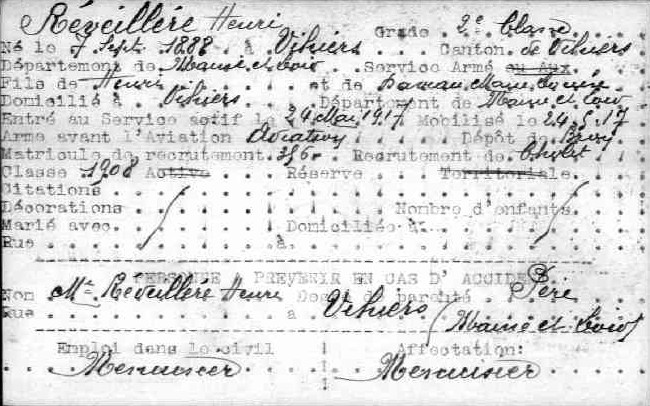 Réveilléré Henri Grade 2e Classe
Né le 7 Sept. 1888 à Vihiers Canton de Vihiers
Département de Maine et Loire Service Armé ou Aux
Fils de Henri et de Marie
Domicilié à Vihiers Département de Maine et Loire
Entré au Service actif le 24 Mai 1917 Mobilisé le 24.5.17
Arme avant l'Aviation Aviation Dépôt de
Matricule de recrutement Recrutement de Cholet
Classe 1908 Active Réserve Territoriale
Citations
Décorations Nombre d'enfants
Marié avec Domiciliée à
Rue à
PERSONNE PREVENIR EN CAS D'ACCIDE
Nom Mr Réveilléré Henri Degré parenté Père
Rue à Vihiers
Maine et Loire
Emploi dans le civil Affectation:
Menuisier Menuisier